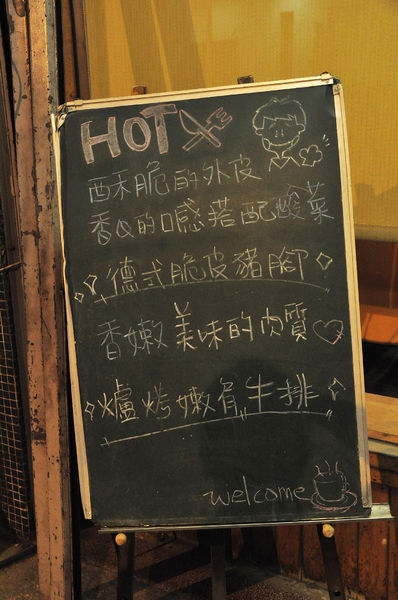 HOT
酥脆的外皮
香Q的口感搭配酸菜
德式脆皮豬腳
香嫩美味的肉質
爐烤嫩肩牛排
welcome